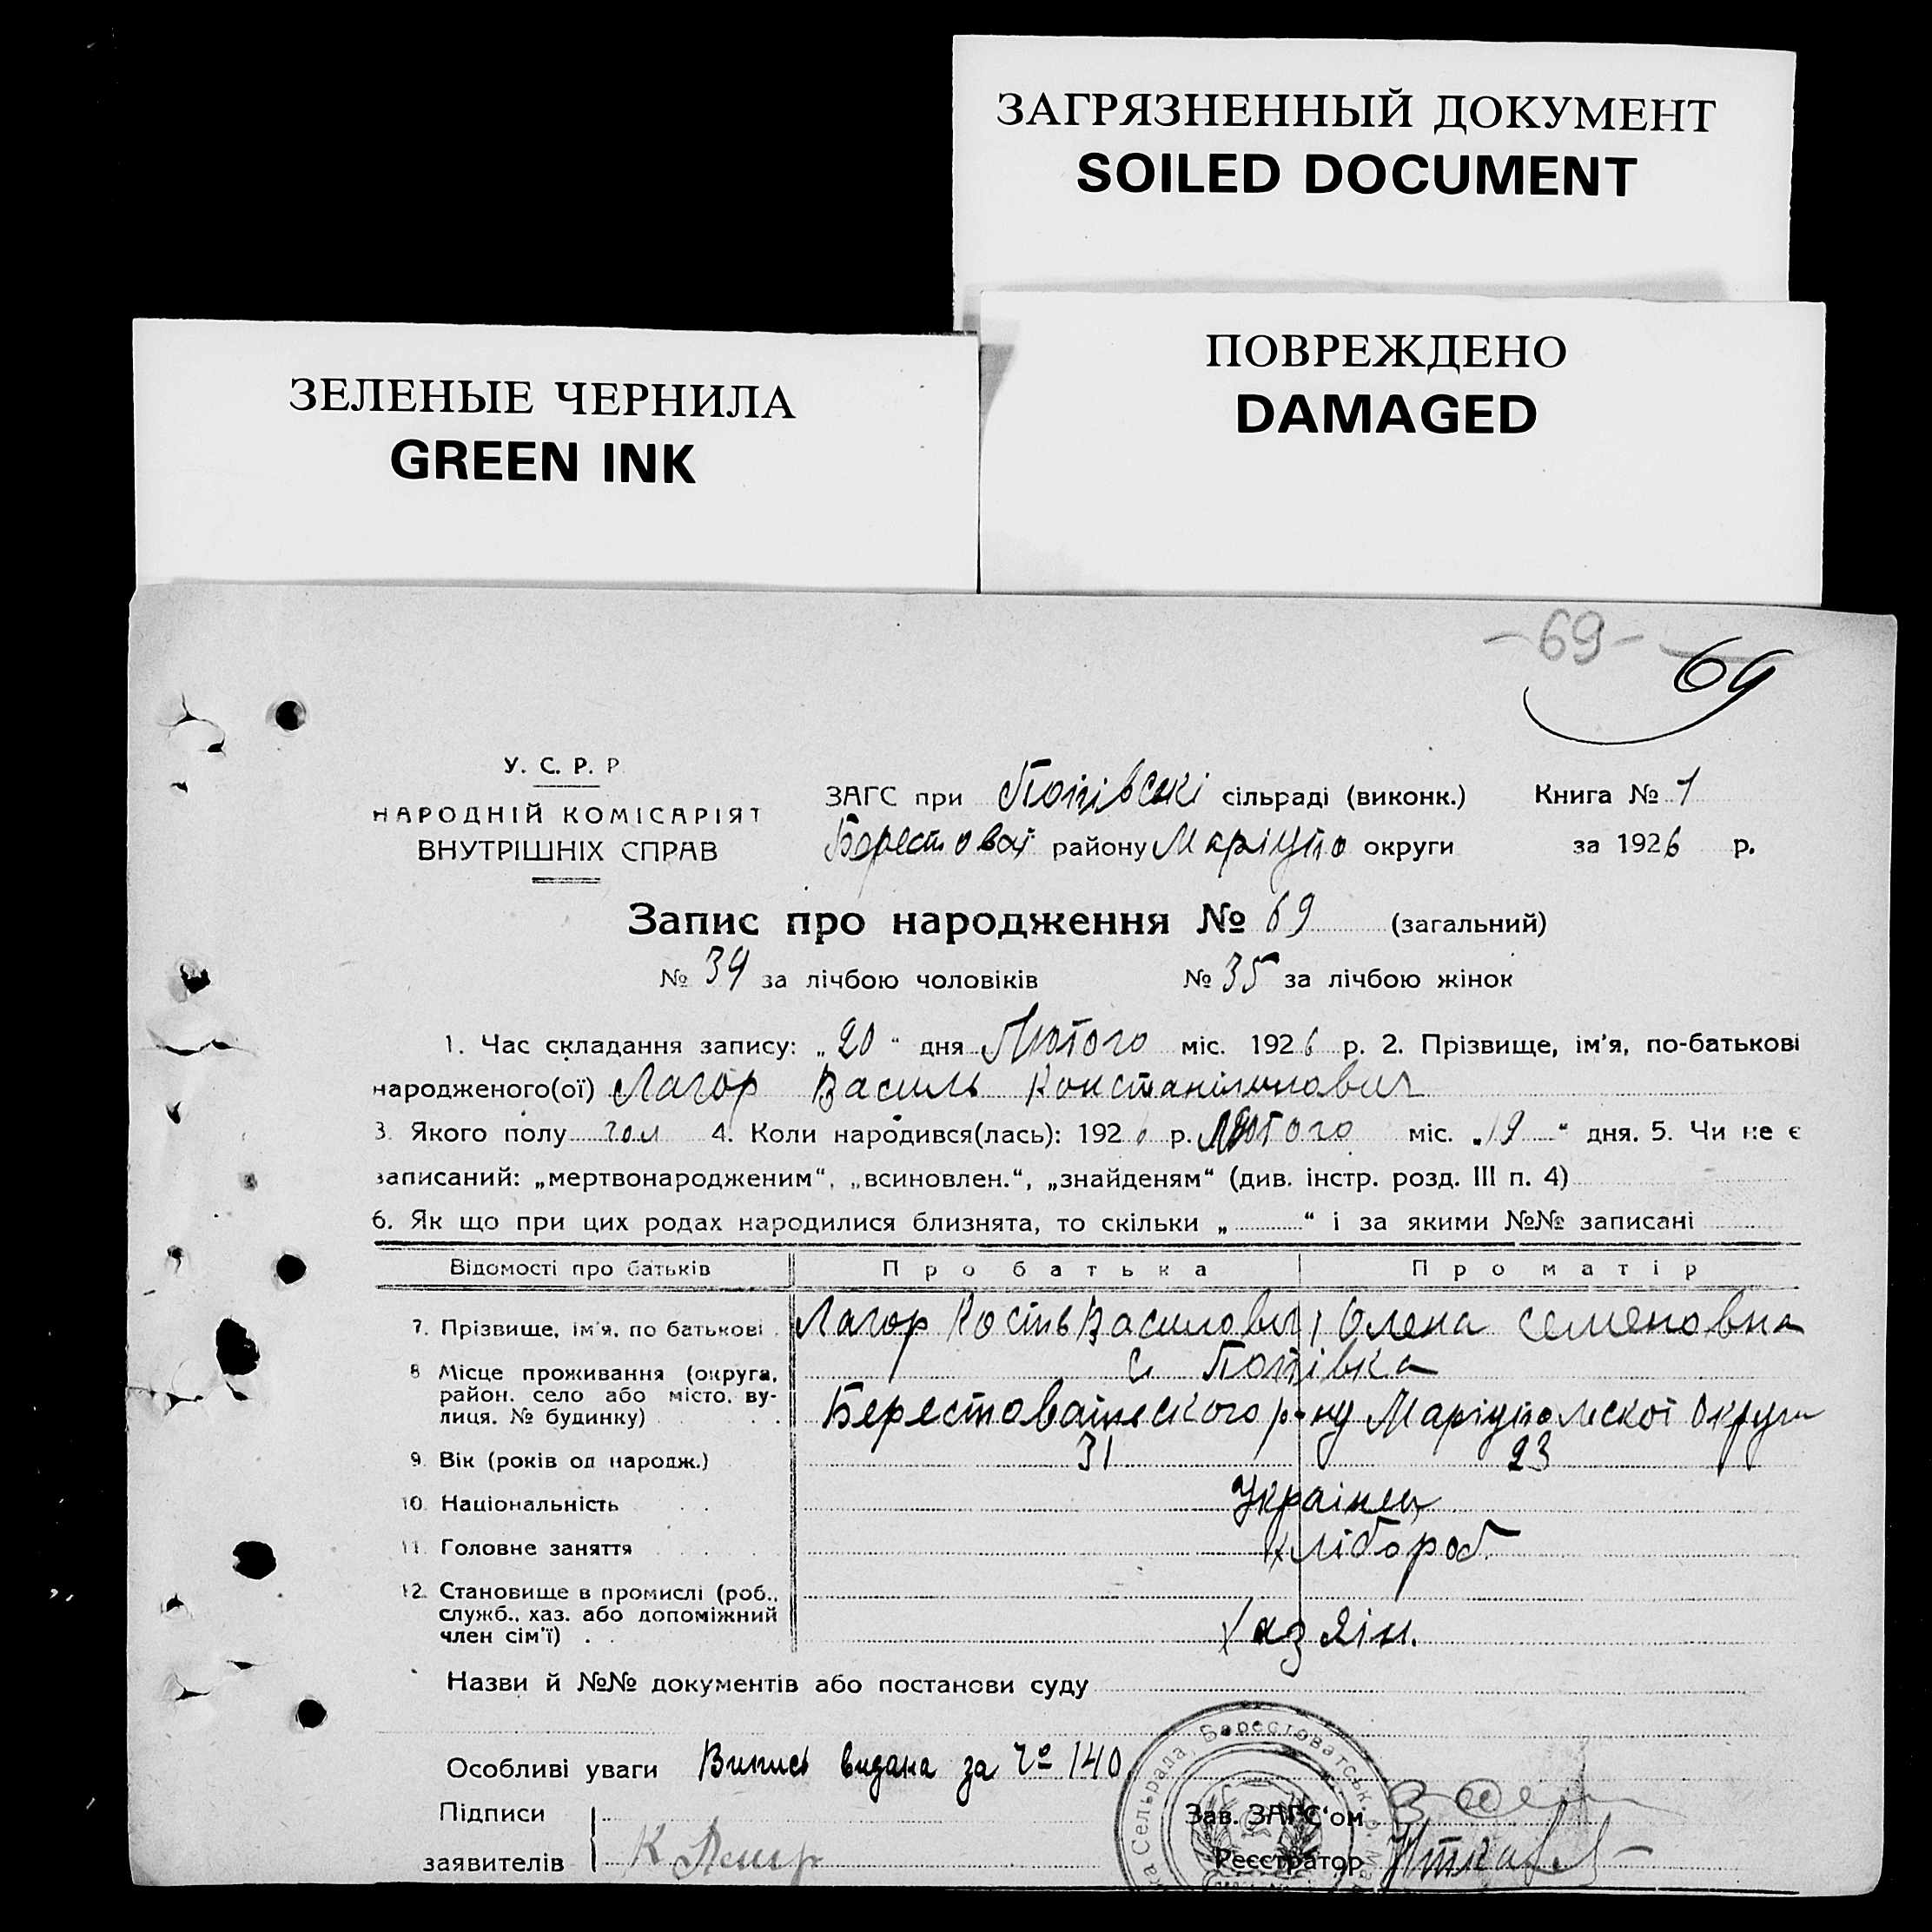 ЗАГРЯЗНЕННЫЙ ДОКУМЕНТ
SOILED DOCUMENT
ЗЕЛЕНЫЕ ЧЕРНИЛА
GREEN INK
ПОВРЕЖДЕНО
DAMAGED
-69-
69
У. С. Р. Р
НАРОДНІЙ КОМІСАРІЯТ
ВНУТРІШНІХ СПРАВ
ЗАГС при Попівскі сільраді (виконк.) Книга № 1
Берестоват району Маріупо округи за 1926 р.
Запис про народження № 69 (загальний)
№ 34 за лічбою чоловіків № 35 за лічбою жінок
1. Час складання запису: „20“ дня Лютого міс. 1926 р. 2. Прізвище, ім'я, по-батькові
народженого(ої) Лагор Василь Константинович
3. Якого полу чол 4. Коли народився(лась): 1926 р. Лютого міс. „19“ дня. 5. Чи не є
записаний: „мертвонародженим“, „всиновлен.“, „знайденям“ (див. інстр. розд. III п. 4)
6. Як що при цих родах народилися близнята, то скільки „ “ і за якими №№ записані
Відомості про батьків Про батька Про матір
7. Прізвище, ім'я, по батькові Лагор Кость Василович Олена Семеновна
8 Місце проживання (округа, с Попівка
район, село або місто, ву-
лиця, № будинку) Берестоватського р-ну Маріупольскої Округи
9. Вік (років од народж.) 31 23
10. Національність Українец
11. Головне заняття Хлібороб
12. Становище в промислі (роб.,
служб., хаз. або допоміжний
член сім'ї) Хазяін.
Назви й №№ документів або постанови суду
Особливі уваги Випись видана за № 140
Підписи Зав. ЗАГС'ом
заявителів К Реєстратор
Сельрада, Берестоватськ